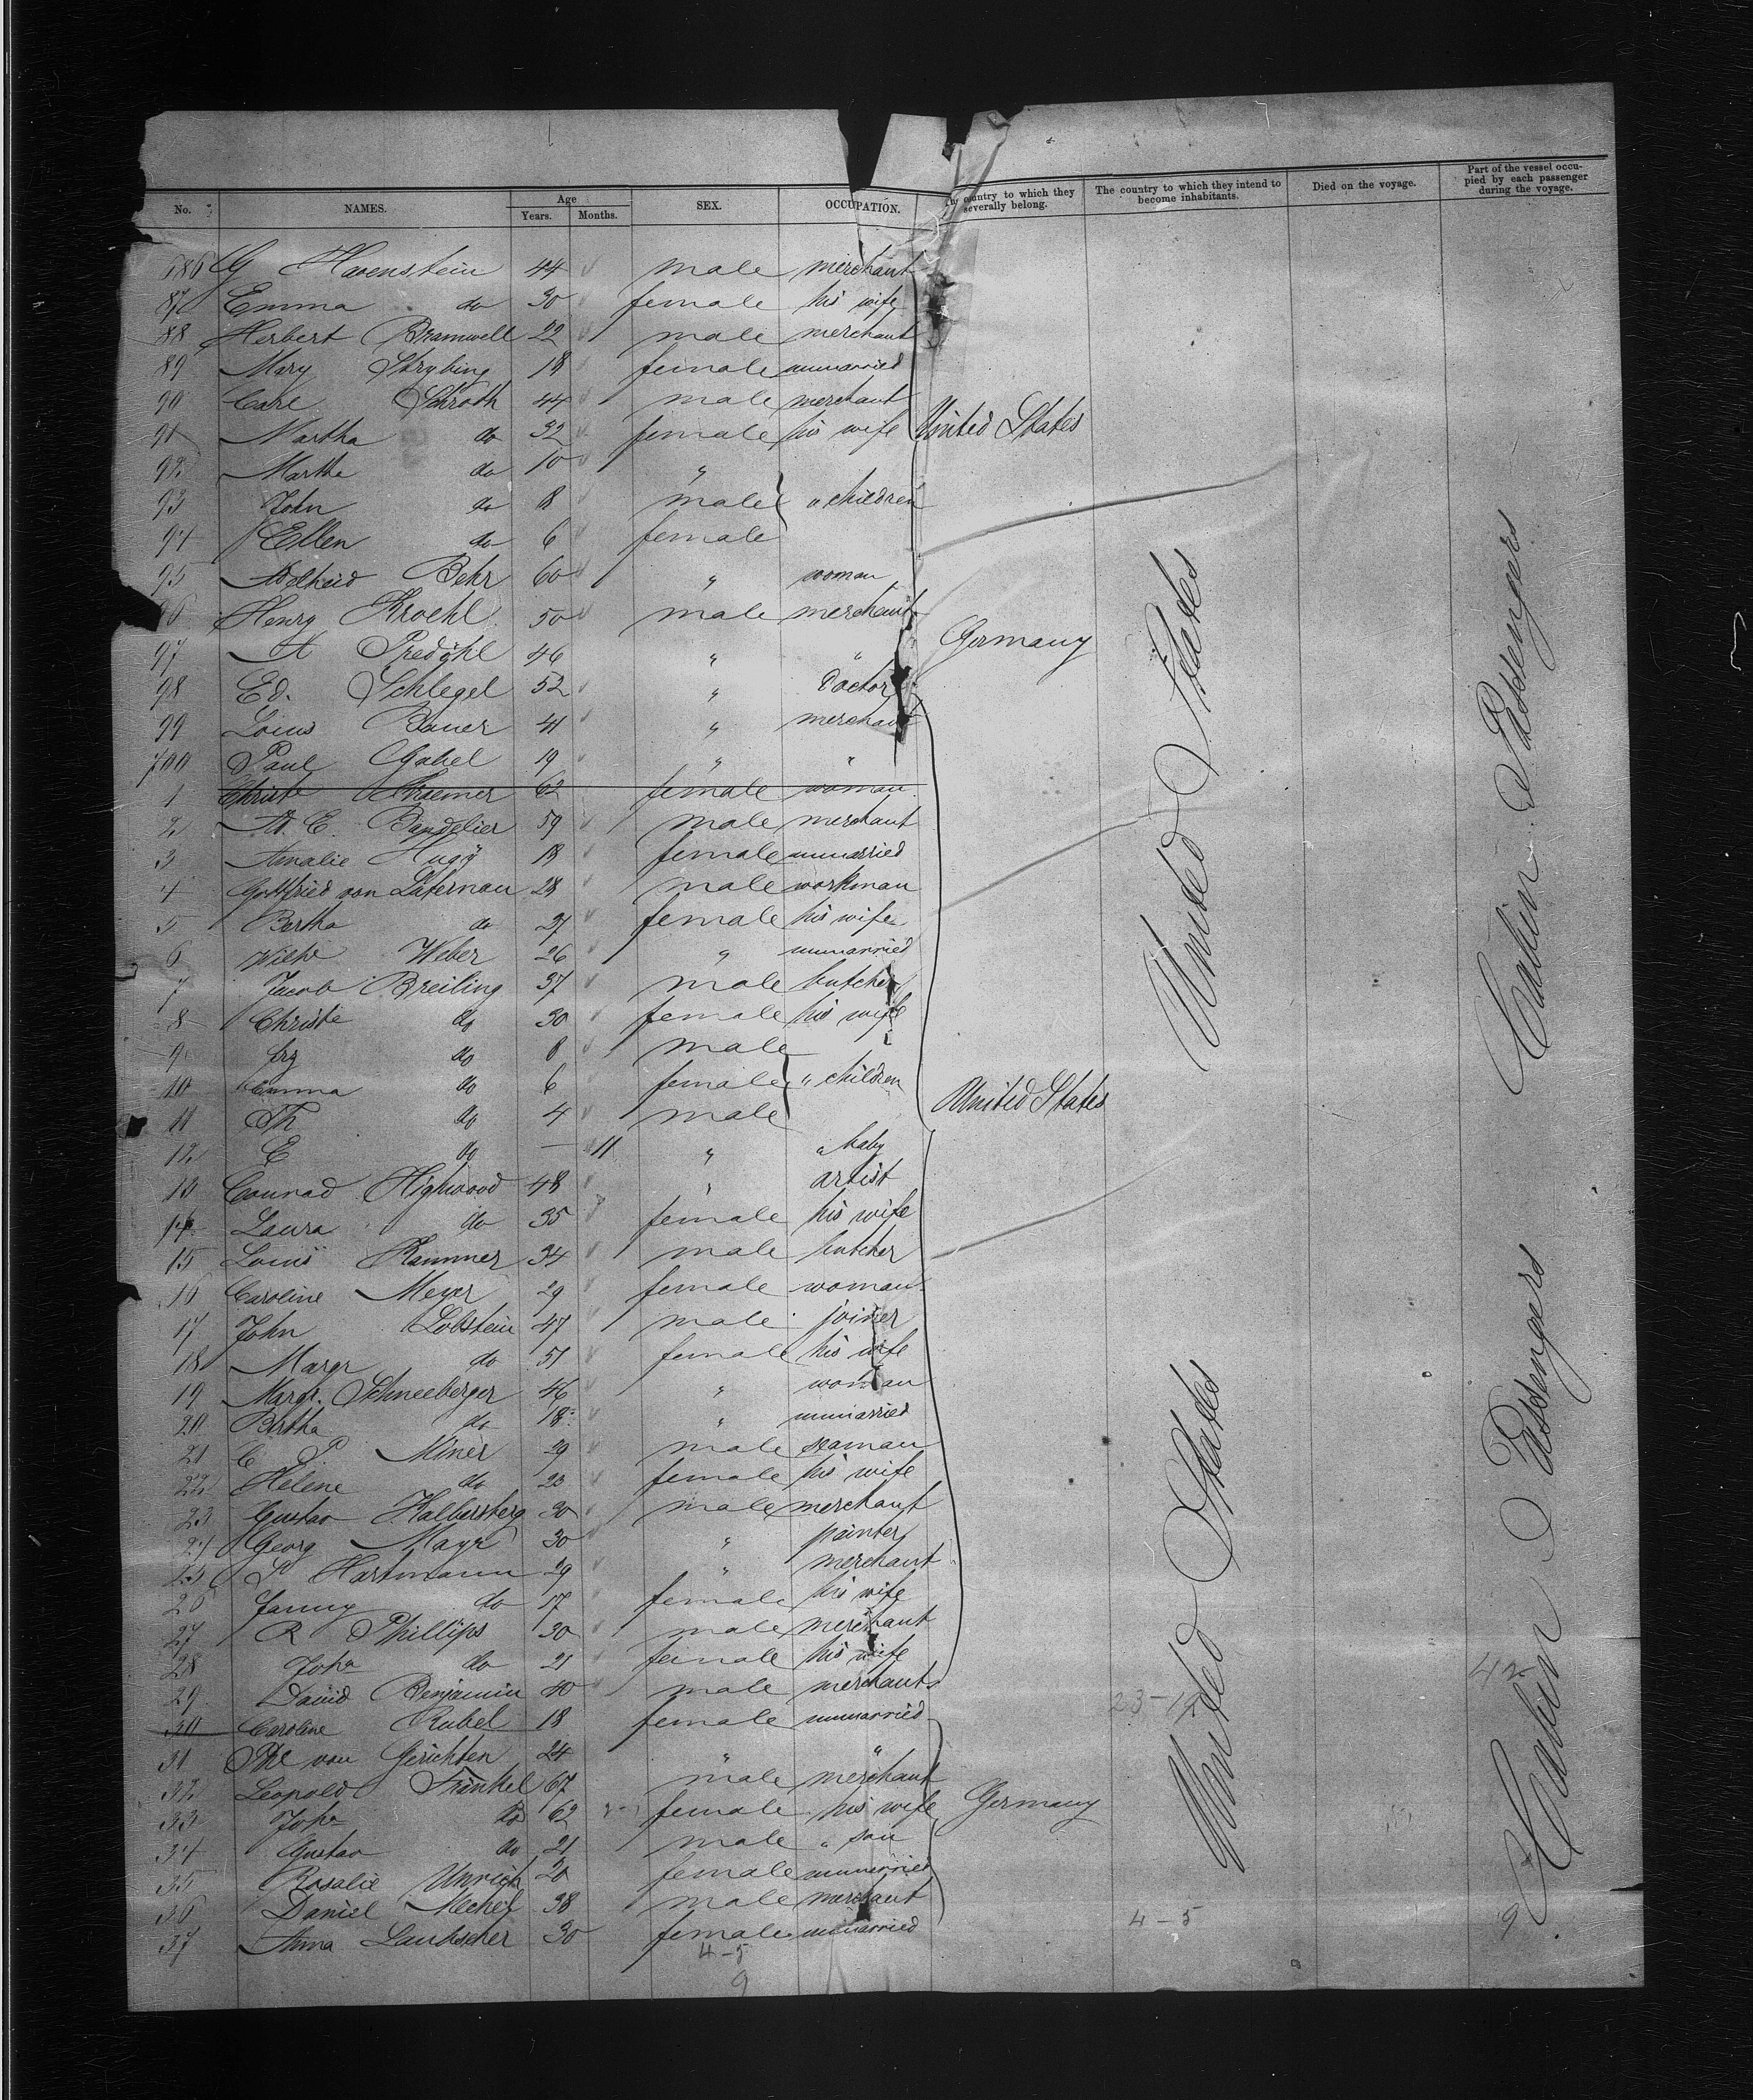 No. NAMES. Age Years. Months. SEX. OCCUPATION. The country to which they severally belong. The country to which they intend to become inhabitants. Died on the voyage. Part of the vessel occupied by each passenger during the voyage.
686 G Havenstein 44 male merchant
87 Emma do 30 female his wife
88 Herbert Bramwell 22 male merchant
89 Mary Strybing 18 female unmarried
90 Carl Schroth 44 male merchant
91 Martha do 32 female his wife United States
92 Martha do 10 "
93 John do 8 male " children
94 Ellen do 6 female
95 Adelheid Behr 60 " woman
96 Henry Kroehl 50 male merchant
97 A Predöhl 46 " " Germany
98 Ed. Schlegel 52 " Doctor
99 Louis Bauer 41 " merchant
700 Paul Gabel 19 " "
1 Christe Kraemer 62 female woman
2 A. E. Bandelier 59 male merchant
3 Amalie Hugÿ 18 female unmarried
4 Gottfried von Laternau 28 male workman
5 Bertha do 27 female his wife
6 Wilhe Weber 26 " unmarried
7 Jacob Breiling 37 male butcher
8 Christe do 30 female his wife
9 do 8 male
10 Emma do 6 female " children
11 Th do 4 male United States
12 E do — 11 " " baby
13 Conrad Highwood 48 " artist
14 Laura do 35 female his wife
15 Louis Kammer 34 male butcher
16 Caroline Meyer 29 female woman
17 John Lobstein 47 male joiner
18 Margr do 51 female his wife
19 Margr. Schneeberger 46 " woman
20 Bertha do 18 " unmarried
21 C P Miner 29 male seaman
22 Helene do 23 female his wife
23 Gustav Halbersberg 30 male merchant
24 Georg Mayr 30 " painter
25 P Hartmann 29 " merchant
26 Fanny do 17 female his wife
27 R Phillips 30 male merchant
28 Joha do 21 female his wife
29 David Benjamin 40 male merchant
30 Caroline Rubel 18 female unmarried
31 von Gerichten 24 " "
32 Leopold Fränkel 67 male merchant
33 Joha do 62 female his wife Germany
34 Gustav do 21 male " son
35 Rosalie Unrich 20 female unmarried
36 Daniel Mechel 38 male merchant
37 Anna Laubscher 30 female unmarried
4-5
9
United States
United States
23-19
4-5
Cabin Passengers
Cabin Passengers
42
9